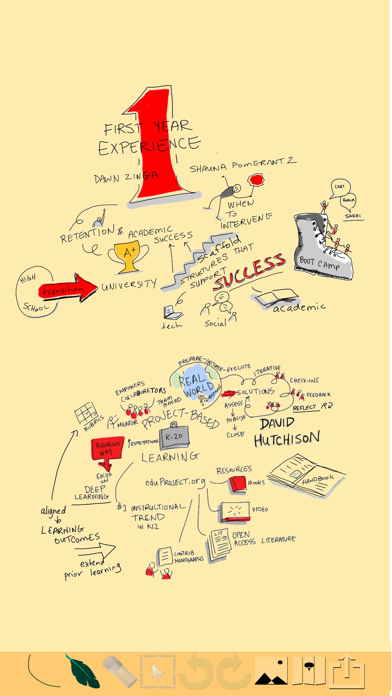 1
FIRST YEAR
EXPERIENCE
DAWN ZINGA
SHAUNA POMERANTZ
WHEN
TO
INTERVENE
RETENTION & ACADEMIC
SUCCESS
A+
HIGH
SCHOOL
transition
UNIVERSITY
Scaffold
STRUCTURES THAT
SUPPORT
SUCCESS
tech
Social
academic
CHAT
SAKAI
BOOT CAMP
PREPARE-
EXECUTE
REAL
WORLD
ITERATIVE
CHECK-INS
FEEDBACK
REFLECT
SOLUTIONS
ASSESS
PUBLISH
CLOSE
DAVID
HUTCHISON
EMPOWERS
COLLABORATORS
TEAM
BASED
MENTOR
RUBRICS
PROJECT-BASED
K-20
LEARNING
EXPECTATIONS
RIGOROUS
WAY
FOCUS
ON
DEEP
LEARNING
eduPROJECT.org
RESOURCES
BOOKS
VIDEO
LIT
OPEN
ACCESS LITERATURE
HANDBOOK
#1 INSTRUCTIONAL
TREND
IN K12
CONTRIB
MONOGRAPHS
aligned
LEARNING
OUTCOMES
extend
prior learning